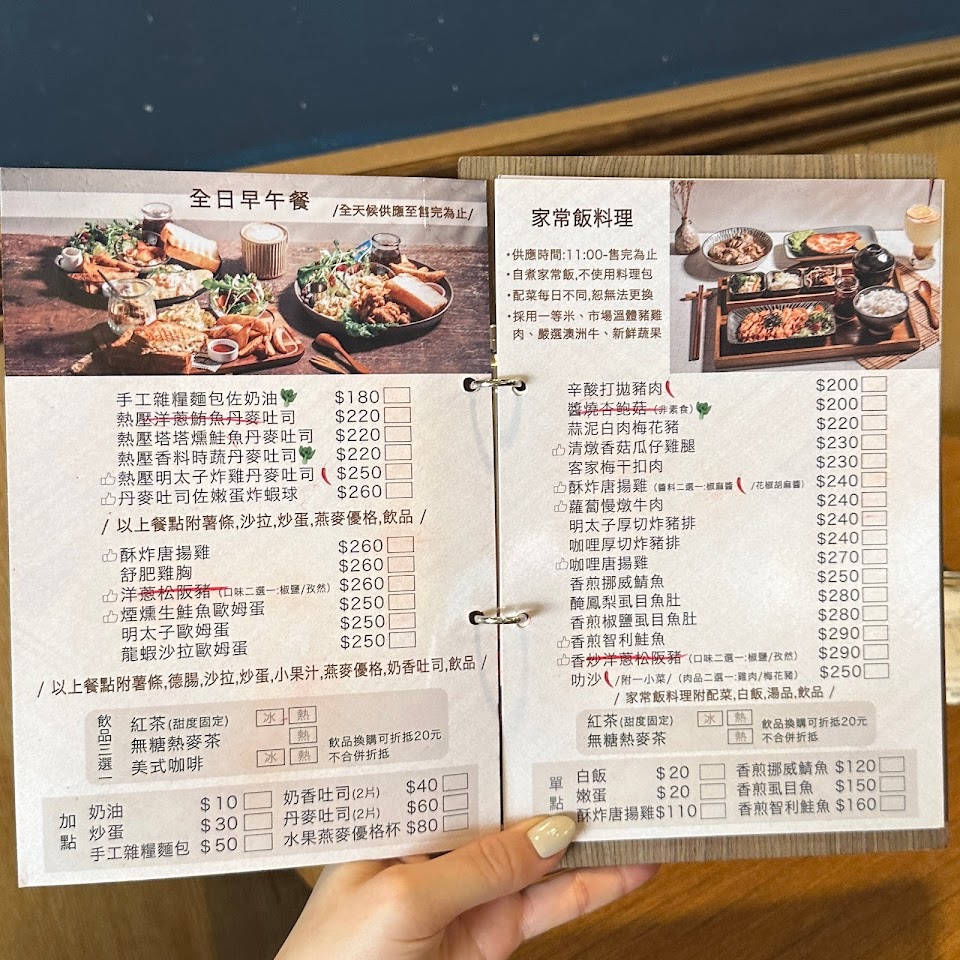 全日早午餐
/全天候供應至售完為止/
手工雜糧麵包佐奶油 $180
熱壓洋蔥鮪魚丹麥吐司 $220
熱壓塔塔燻鮭魚丹麥吐司 $220
熱壓香料時蔬丹麥吐司 $220
熱壓明太子炸雞丹麥吐司 $250
丹麥吐司佐嫩蛋炸蝦球 $260
/ 以上餐點附薯條,沙拉,炒蛋,燕麥優格,飲品 /
酥炸唐揚雞 $260
舒肥雞胸 $260
洋蔥松阪豬 (口味二選一:椒鹽/孜然) $260
煙燻生鮭魚歐姆蛋 $250
明太子歐姆蛋 $250
龍蝦沙拉歐姆蛋 $250
/ 以上餐點附薯條,德腸,沙拉,炒蛋,小果汁,燕麥優格,奶香吐司,飲品 /
飲品三選一
紅茶(甜度固定) 冰 熱
無糖熱麥茶 熱
美式咖啡 冰 熱
飲品換購可折抵20元
不合併折抵
加點
奶油 $10
炒蛋 $30
手工雜糧麵包 $50
奶香吐司(2片) $40
丹麥吐司(2片) $60
水果燕麥優格杯 $80
家常飯料理
·供應時間:11:00-售完為止
·自煮家常飯,不使用料理包
·配菜每日不同,恕無法更換
·採用一等米、市場溫體豬雞
肉、嚴選澳洲牛、新鮮蔬果
辛酸打拋豬肉 $200
醬燒杏鮑菇 (非素食) $200
蒜泥白肉梅花豬 $220
清燉香菇瓜仔雞腿 $230
客家梅干扣肉 $230
酥炸唐揚雞 (醬料二選一:椒麻醬 /花椒胡麻醬) $240
蘿蔔慢燉牛肉 $240
明太子厚切炸豬排 $240
咖哩厚切炸豬排 $240
咖哩唐揚雞 $270
香煎挪威鯖魚 $250
醃鳳梨虱目魚肚 $280
香煎椒鹽虱目魚肚 $280
香煎智利鮭魚 $290
香炒洋蔥松阪豬 (口味二選一:椒鹽/孜然) $290
叻沙 /附一小菜/ (肉品二選一:雞肉/梅花豬) $250
/ 家常飯料理附配菜,白飯,湯品,飲品 /
紅茶(甜度固定) 冰 熱
無糖熱麥茶 熱
飲品換購可折抵20元
不合併折抵
單點
白飯 $20
嫩蛋 $20
酥炸唐揚雞 $110
香煎挪威鯖魚 $120
香煎虱目魚 $150
香煎智利鮭魚 $160